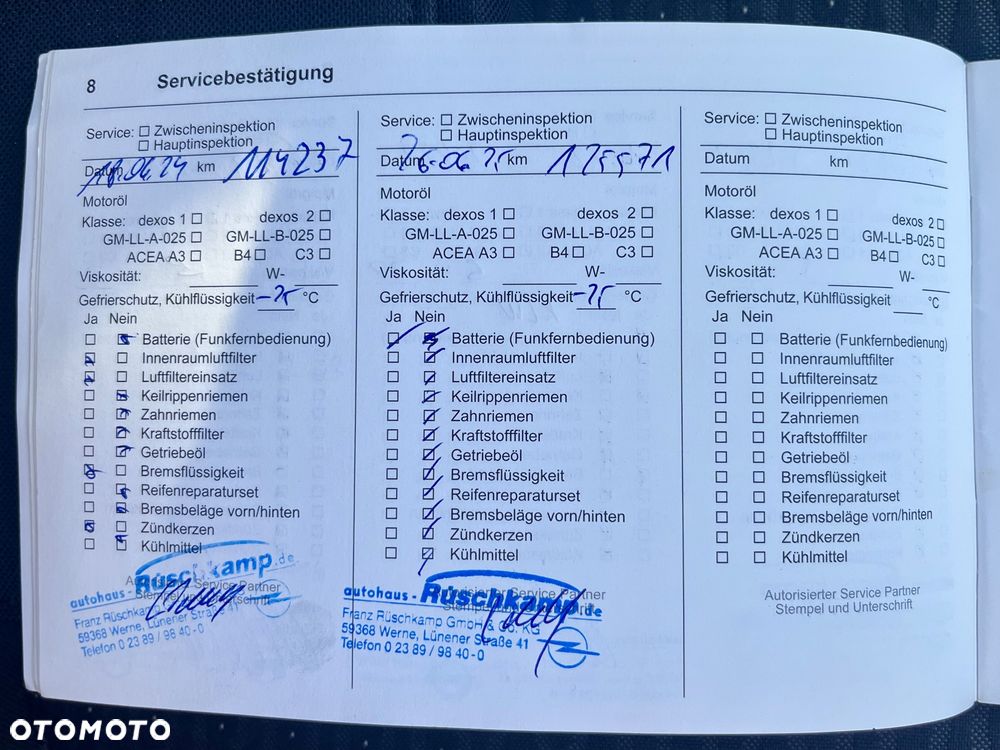 8 Servicebestätigung
Service: ☐ Zwischeninspektion
☐ Hauptinspektion
Datum 18.06.24 km 114237
Motoröl
Klasse: dexos 1 ☐ dexos 2 ☐
GM-LL-A-025 ☐ GM-LL-B-025 ☐
ACEA A3 ☐ B4 ☐ C3 ☐
Viskosität: W-
Gefrierschutz, Kühlflüssigkeit -25 °C
Ja Nein
Batterie (Funkfernbedienung)
Innenraumluftfilter
Luftfiltereinsatz
Keilrippenriemen
Zahnriemen
Kraftstofffilter
Getriebeöl
Bremsflüssigkeit
Reifenreparaturset
Bremsbeläge vorn/hinten
Zündkerzen
Kühlmittel
Autorisierter Service Partner
Stempel und Unterschrift
autohaus - Rüschkamp.de
Franz Rüschkamp
59368 Werne, Lünener Straße 41
Telefon 0 23 89 / 98 40-0
Service: ☐ Zwischeninspektion
☐ Hauptinspektion
Datum 26.06.25 km 125571
Motoröl
Klasse: dexos 1 ☐ dexos 2 ☐
GM-LL-A-025 ☐ GM-LL-B-025 ☐
ACEA A3 ☐ B4 ☐ C3 ☐
Viskosität: W-
Gefrierschutz, Kühlflüssigkeit -25 °C
Ja Nein
Batterie (Funkfernbedienung)
Innenraumluftfilter
Luftfiltereinsatz
Keilrippenriemen
Zahnriemen
Kraftstofffilter
Getriebeöl
Bremsflüssigkeit
Reifenreparaturset
Bremsbeläge vorn/hinten
Zündkerzen
Kühlmittel
Autorisierter Service Partner
autohaus - Rüschkamp.de
Franz Rüschkamp GmbH & Co. KG
59368 Werne, Lünener Straße 41
Telefon 0 23 89 / 98 40-0
Service: ☐ Zwischeninspektion
☐ Hauptinspektion
Datum km
Motoröl
Klasse: dexos 1 ☐ dexos 2 ☐
GM-LL-A-025 ☐ GM-LL-B-025 ☐
ACEA A3 ☐ B4 ☐ C3 ☐
Viskosität: W-
Gefrierschutz, Kühlflüssigkeit °C
Ja Nein
☐ ☐ Batterie (Funkfernbedienung)
☐ ☐ Innenraumluftfilter
☐ ☐ Luftfiltereinsatz
☐ ☐ Keilrippenriemen
☐ ☐ Zahnriemen
☐ ☐ Kraftstofffilter
☐ ☐ Getriebeöl
☐ ☐ Bremsflüssigkeit
☐ ☐ Reifenreparaturset
☐ ☐ Bremsbeläge vorn/hinten
☐ ☐ Zündkerzen
☐ ☐ Kühlmittel
Autorisierter Service Partner
Stempel und Unterschrift
OTOMOTO